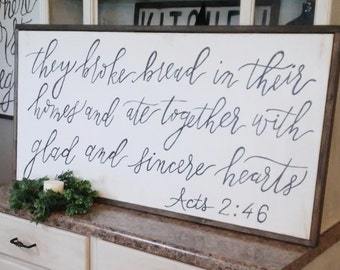 KITCHEN
they broke bread in their
homes and ate together with
glad and sincere hearts
Acts 2:46